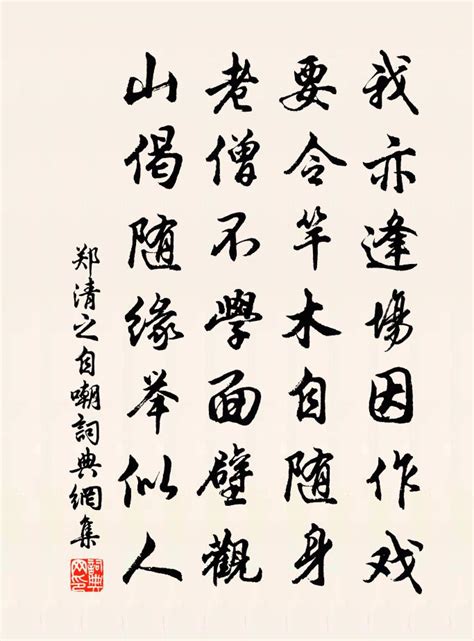 我亦逢場因作戏
要令竿木自随身
老僧不學面壁觀
山偈随缘举似人
郑清之自嘲詞典網集
詞典网印